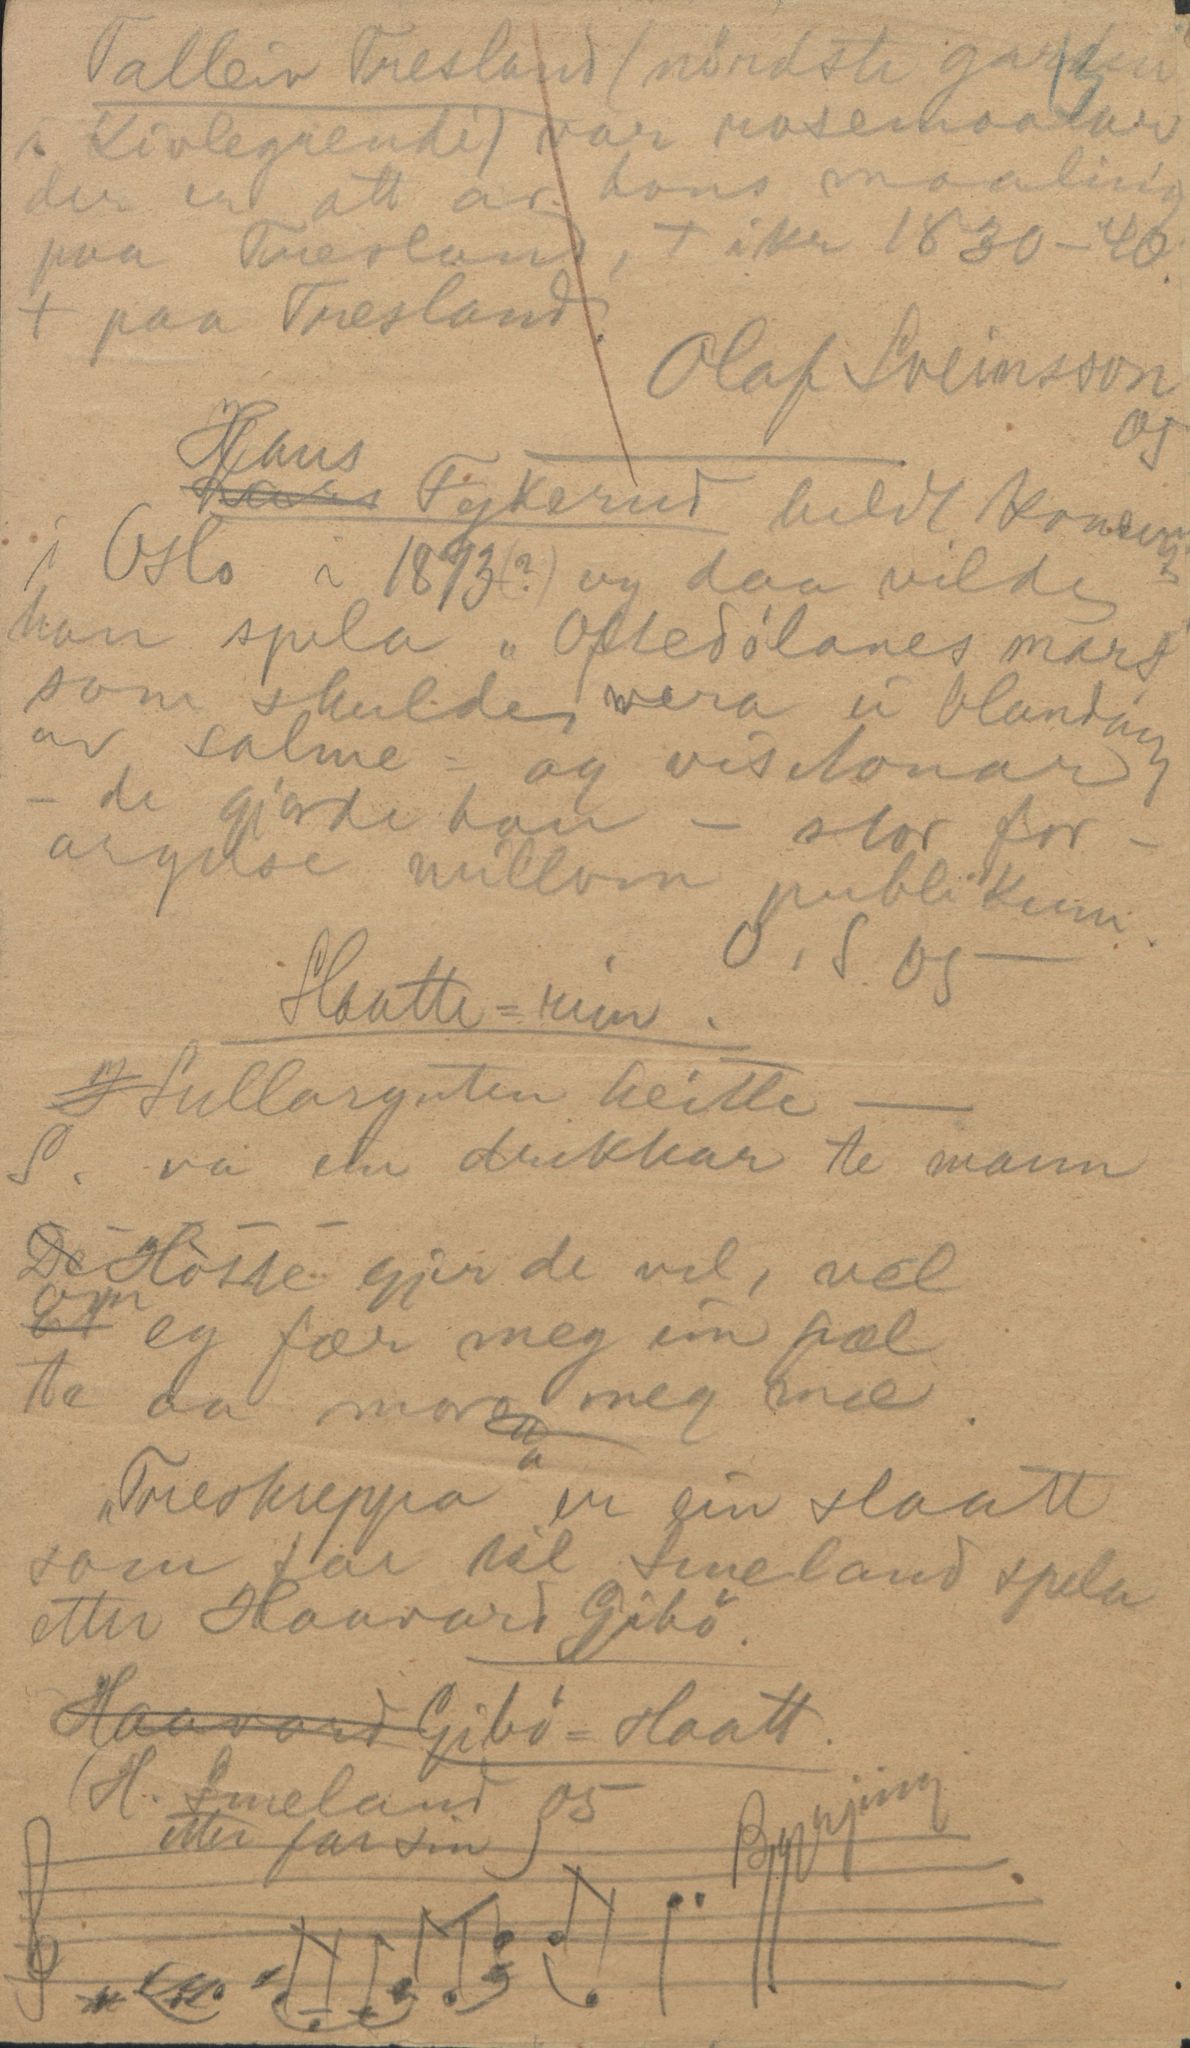 Talleiv Tresland (nördste garden
i Kivlegrendi) var rosemaalar
der er ått av hans maaling
paa Tresland, + ikr 1830-40.
+ paa Tresland.
Olaf Sveinsson
05
Hans
Lars Fykerud heldt konsert
i Oslo i 1893(?) og daa vilde
han spela "Oftedölanes mars"
som skulde vera ei blanding
av salme- og visetonar
- de gjorde han - stor for-
argelse millom publikum.
O. S. 05
Slaatte=rim.
Myllarguten heitte —
S. va en drikkar te mann
De Höske gjer de vel, vel
om eg fær meg ein pæl
te aa mora meg mæ.
"Treskreppa" er ein slaatt
som far til Smeland spela
etter Haavard Gibö.
Haavard Gibö=slaatt.
(H. Smeland 05
etter far sin)
Byrjing